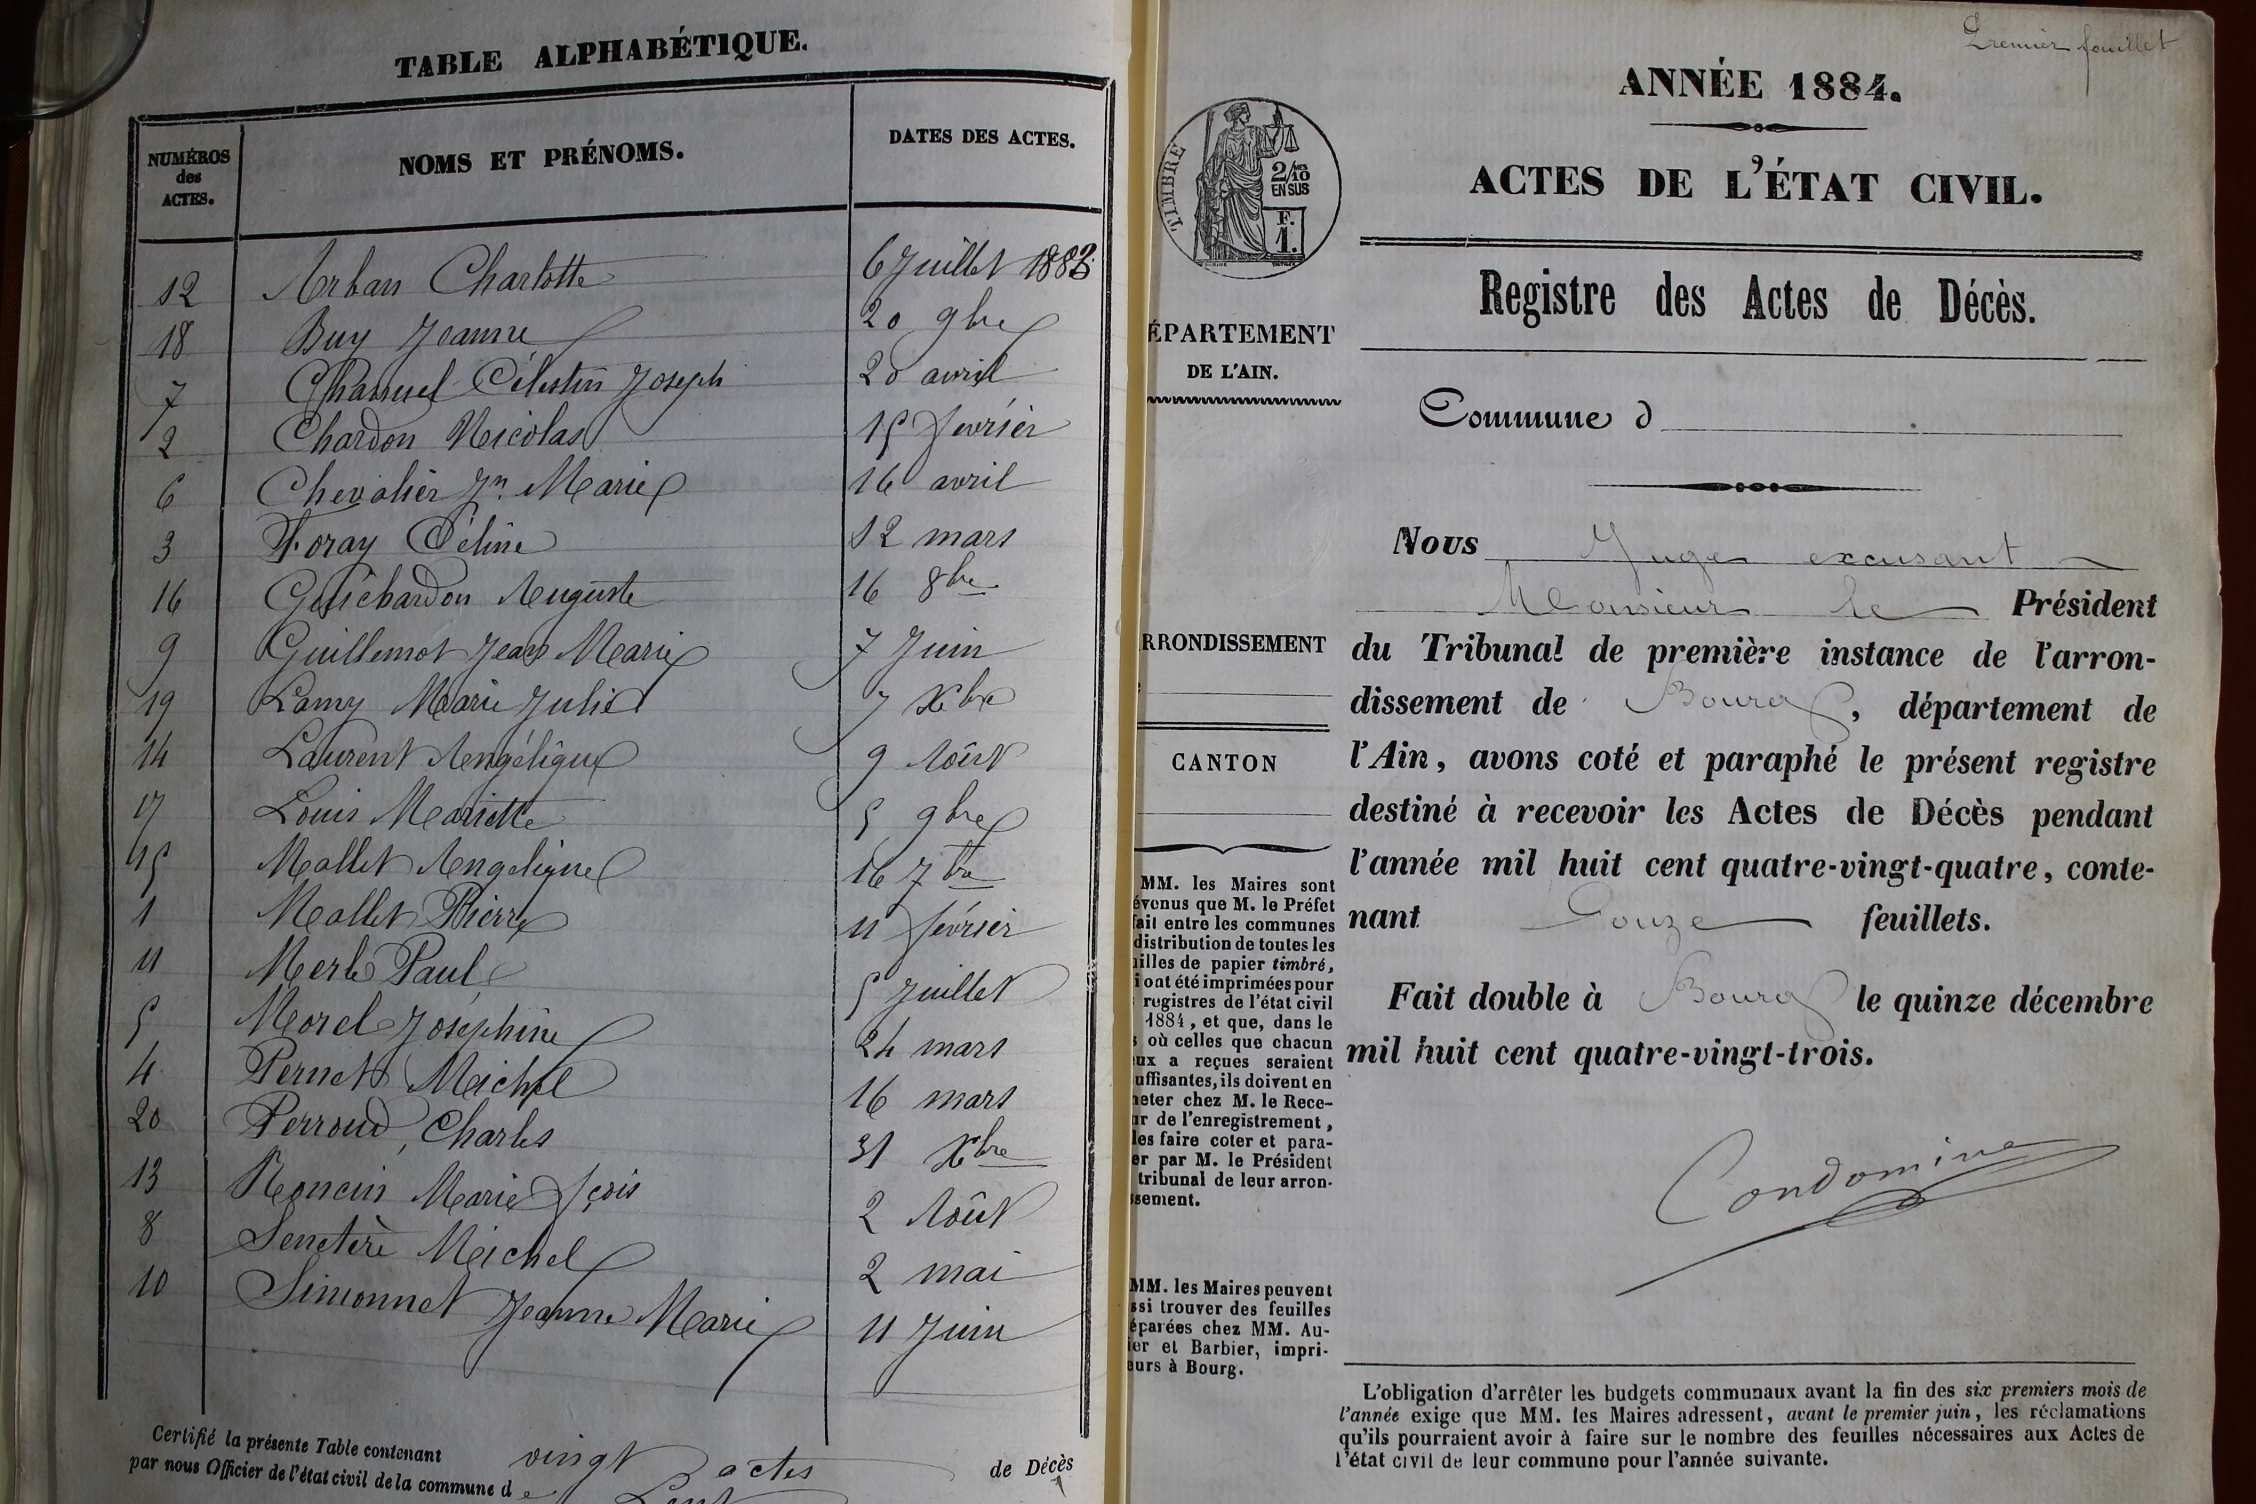 TABLE ALPHABÉTIQUE.
NUMÉROS
des
ACTES.
NOMS ET PRÉNOMS.
DATES DES ACTES.
12 Arban Charlotte 6 Juillet 1883
18 Buy Jeanne 20 9bre
7 Chanuel Célestin Joseph 20 avril
2 Chardon Nicolas 15 février
6 Chevalier Jn Marie 16 avril
3 Foray Céline 12 mars
16 Guichardon Auguste 16 8bre
9 Guillemot Jean Marie 7 Juin
19 Lamy Marie Julie 7 Xbre
14 Laurent Angélique 9 Août
17 Louis Mariette 5 9bre
15 Mallet Angélique 16 7bre
1 Mallet Pierre 11 février
11 Merle Paul 5 Juillet
5 Morel Joséphine 24 mars
4 Pernet Michel 16 mars
20 Perroud, Charles 31 Xbre
13 Roncin Marie fçois 2 Août
8 Senetère Michel 2 mai
10 Simonnet Jeanne Marie 11 Juin
Certifié la présente Table contenant vingt actes de Décès
par nous Officier de l'état civil de la commune de
Premier feuillet
ANNÉE 1884.
ACTES DE L'ÉTAT CIVIL.
TIMBRE
2/10
EN SUS
F.
1.
Registre des Actes de Décès.
ÉPARTEMENT
DE L'AIN.
Commune d
Nous Juge excusant
Monsieur le Président
RRONDISSEMENT
du Tribunal de première instance de l'arron-
dissement de Bourg, département de
l'Ain, avons coté et paraphé le présent registre
destiné à recevoir les Actes de Décès pendant
l'année mil huit cent quatre-vingt-quatre, conte-
nant Douze feuillets.
Fait double à Bourg le quinze décembre
mil huit cent quatre-vingt-trois.
Condomine
CANTON
MM. les Maires sont
évenus que M. le Préfet
fait entre les communes
distribution de toutes les
uilles de papier timbré,
i ont été imprimées pour
registres de l'état civil
1884, et que, dans le
s où celles que chacun
eux a reçues seraient
uffisantes, ils doivent en
heter chez M. le Rece-
ur de l'enregistrement,
les faire coter et para-
er par M. le Président
tribunal de leur arron-
ssement.
MM. les Maires peuvent
ssi trouver des feuilles
éparées chez MM. Au-
ier et Barbier, impri-
eurs à Bourg.
L'obligation d'arrêter les budgets communaux avant la fin des six premiers mois de
l'année exige que MM. les Maires adressent, avant le premier juin, les réclamations
qu'ils pourraient avoir à faire sur le nombre des feuilles nécessaires aux Actes de
l'état civil de leur commune pour l'année suivante.